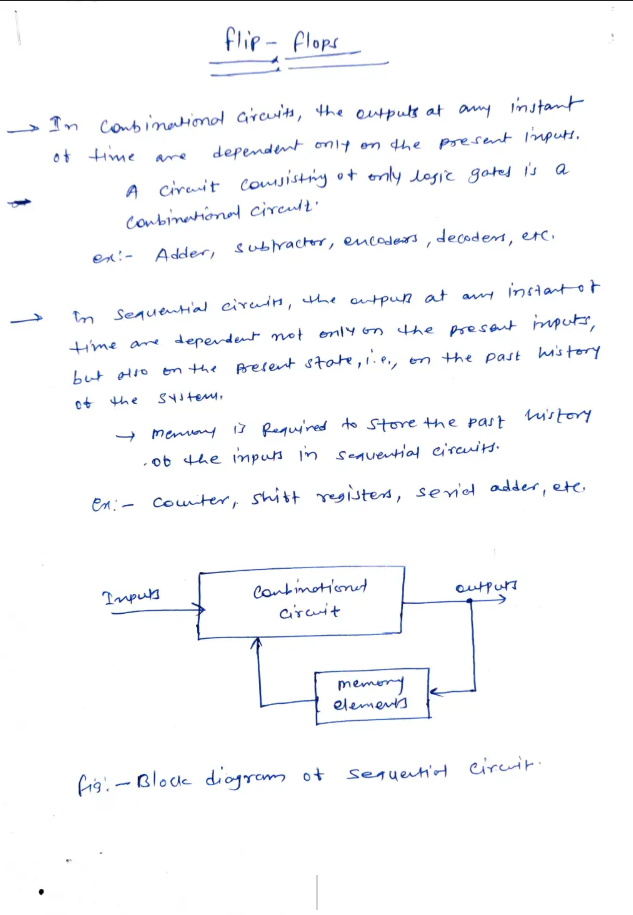 flip - flops
→ In Combinational circuits, the outputs at any instant
of time are dependent only on the present inputs.
→ A circuit consisting of only logic gates is a
Combinational circuit.
ex:- Adder, subtractor, encoders, decoders, etc.
→ In Sequential circuits, the outputs at any instant of
time are dependent not only on the present inputs,
but also on the present state, i.e., on the past history
of the system.
→ memory is Required to store the past history
of the inputs in sequential circuits.
Ex:- counter, shift registers, serial adder, etc.
Inputs
Combinational
circuit
outputs
memory
elements
fig:- Block diagram of sequential circuit.